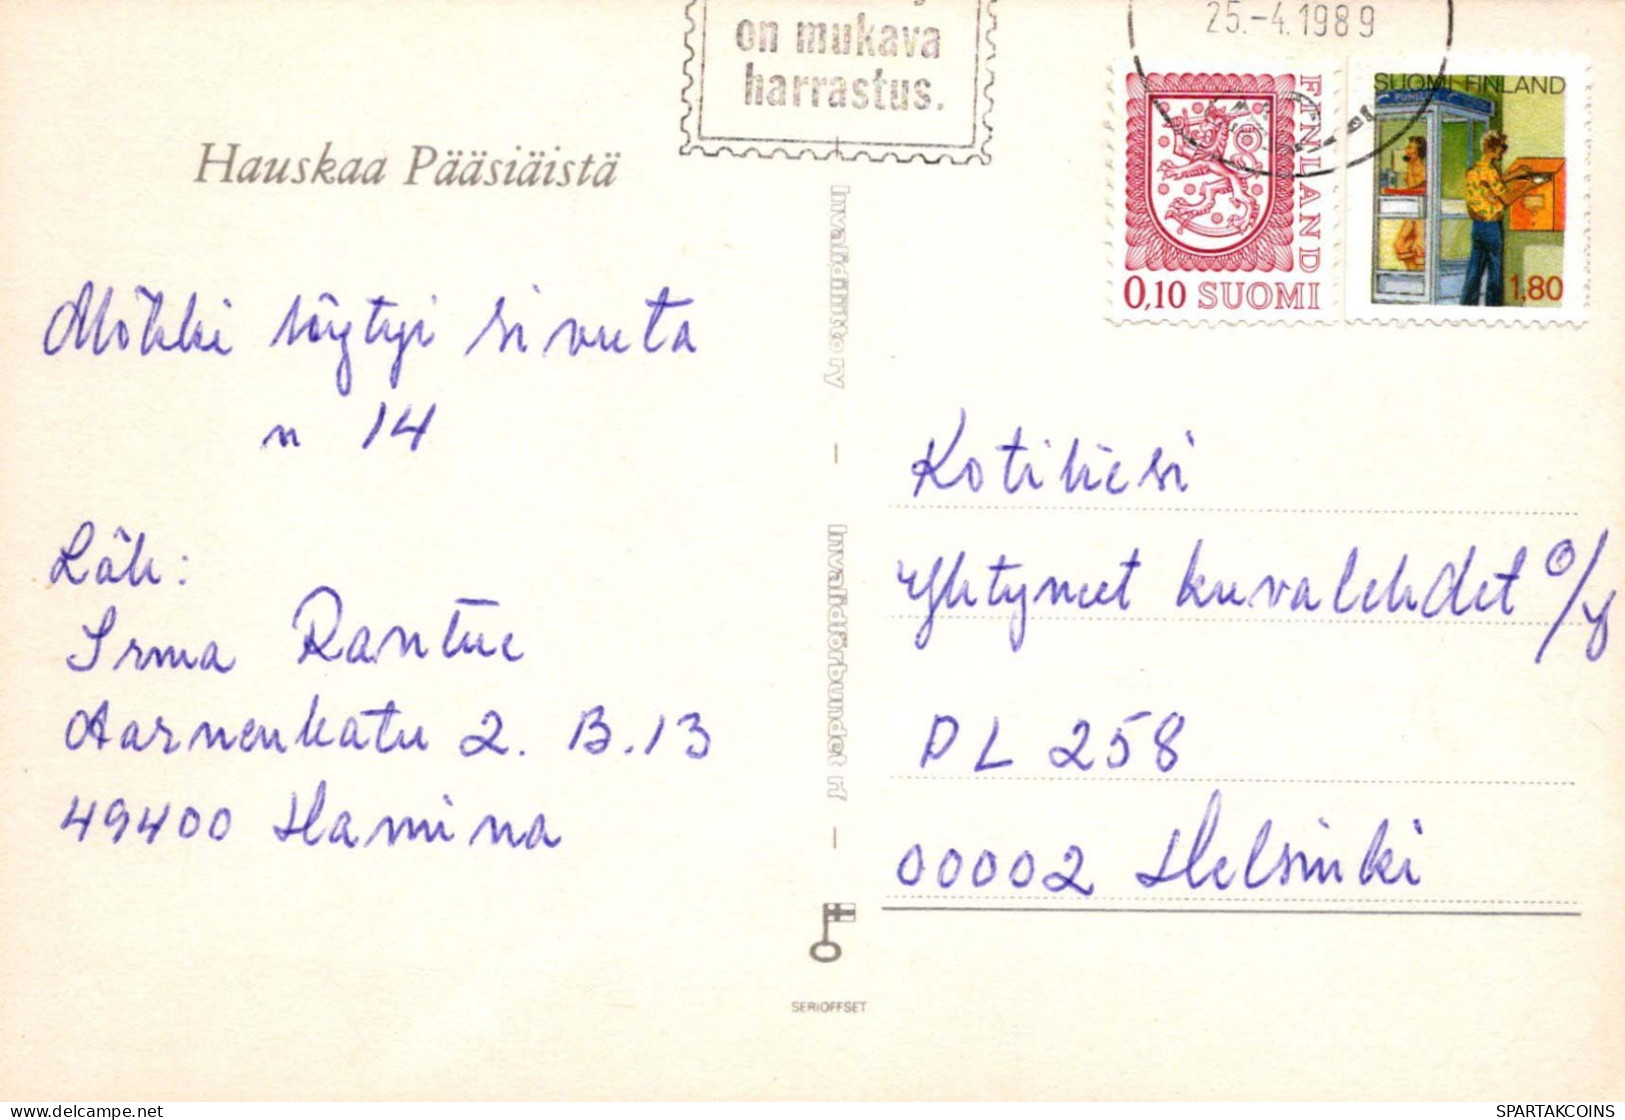 on mukava
harrastus.
25.-4.1989
FINLAND
0,10 SUOMI
SUOMI FINLAND
1,80
Hauskaa Pääsiäistä
Mökki löytyi sivulta
n 14
Läh:
Irma
Aarnenkatu 2. B.13
49400 Hamina
Invalidiliitto ry
Invalidförbundet rf
SERIOFFSET
Kotiliesi
Yhtyneet kuvalehdet o/y
PL 258
00002 Helsinki
delcampe.net
SPARTAKCOINS